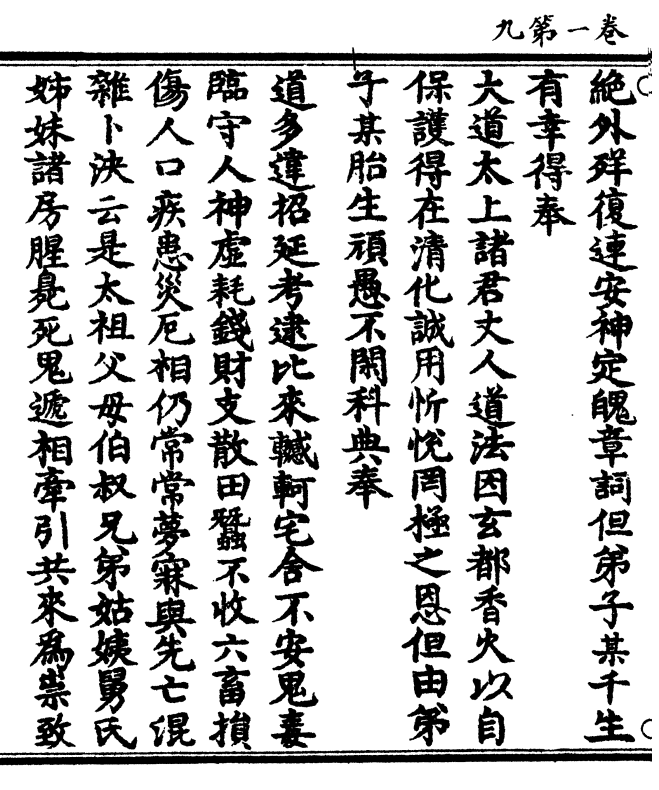 九第一卷
絶外殃復連安神定魄章詞但弟子某千生
有幸得奉
大道太上諸君丈人道法因玄都香火以自
保護得在清化誠用忻悅罔極之恩但由弟
子某胎生頑愚不閑科典奉
道多違招延考逮比來轗軻宅舍不安鬼妻
臨守人神虛耗錢財支散田蠶不收六畜損
傷人口疾患災厄相仍常常夢寐與先亡混
雜卜決云是太祖父母伯叔兄弟姑姨舅氏
姊妹諸房腥臰死鬼遞相牽引共來爲祟致